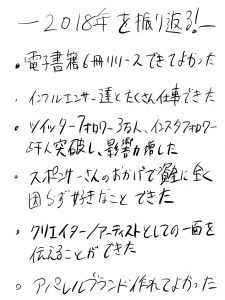 －2018年を振り返る!－
・電子書籍6冊リリースできてよかった
・インフルエンサー達とたくさん仕事できた
・ツイッターフォロワー3万人、インスタフォロワー
5千人突破し、影響力増した
・スポンサーさんのおかげで資金に全く
困らず好きなことできた
・クリエイター/アーティストとしての一面を
伝えることができた
・アパレルブランド作れてよかった